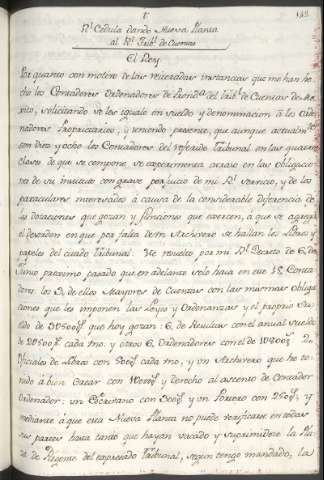 1.
Rl. Cedula dando Nueva Planta
al Rl. Tribl. de Cuentas
El Rey
Por quanto con motivo de las reiteradas instancias que me han he-
cho los Contadores Ordenadores de del Tribl. de Cuentas de Me-
xico, solicitando se les iguale en sueldo y denominacion à los Orde-
nadores Propietarios, y teniendo presente, que aunque actualmte.
son diez y ocho los Contadores del referido Tribunal en las quatro
clases de que se compone, se experimenta atraso en las obligacio-
nes de su instituto con grave perjuicio de mi Rl. servicio, y de los
particulares interesados à causa de la considerable diferencia de
las dotaciones que gozan y funciones que exercen, à que se agrega
el desorden en que por falta de un Archivero se hallan los Libros y
papeles del citado Tribunal: He resuelto por mi Rl. Decreto de 6, de
Junio proximo pasado que en adelante solo haya en éve 15 Conta-
dores: los 3, de ellos Mayores de Cuentas con las mismas obliga-
ciones que les imponen las Leyes y Ordenanzas y el proprio suel-
do de que hoy gozan: 6, de Resultas con el anual sueldo
de cada uno: y otros 6, Ordenadores con el de
Oficiales de Libros con cada uno, y un Archivero que ha te-
nido à bien crear con y derecho al ascenso de Contador
Ordenador: un Escrivano con y un Portero con y
mediante à que esta Nueva Planta no puede verificarse en todas
sus partes hasta tanto que hayan vacado y suprimidose la Pla-
za de Regente del expresado Tribunal, segun tengo mandado, la